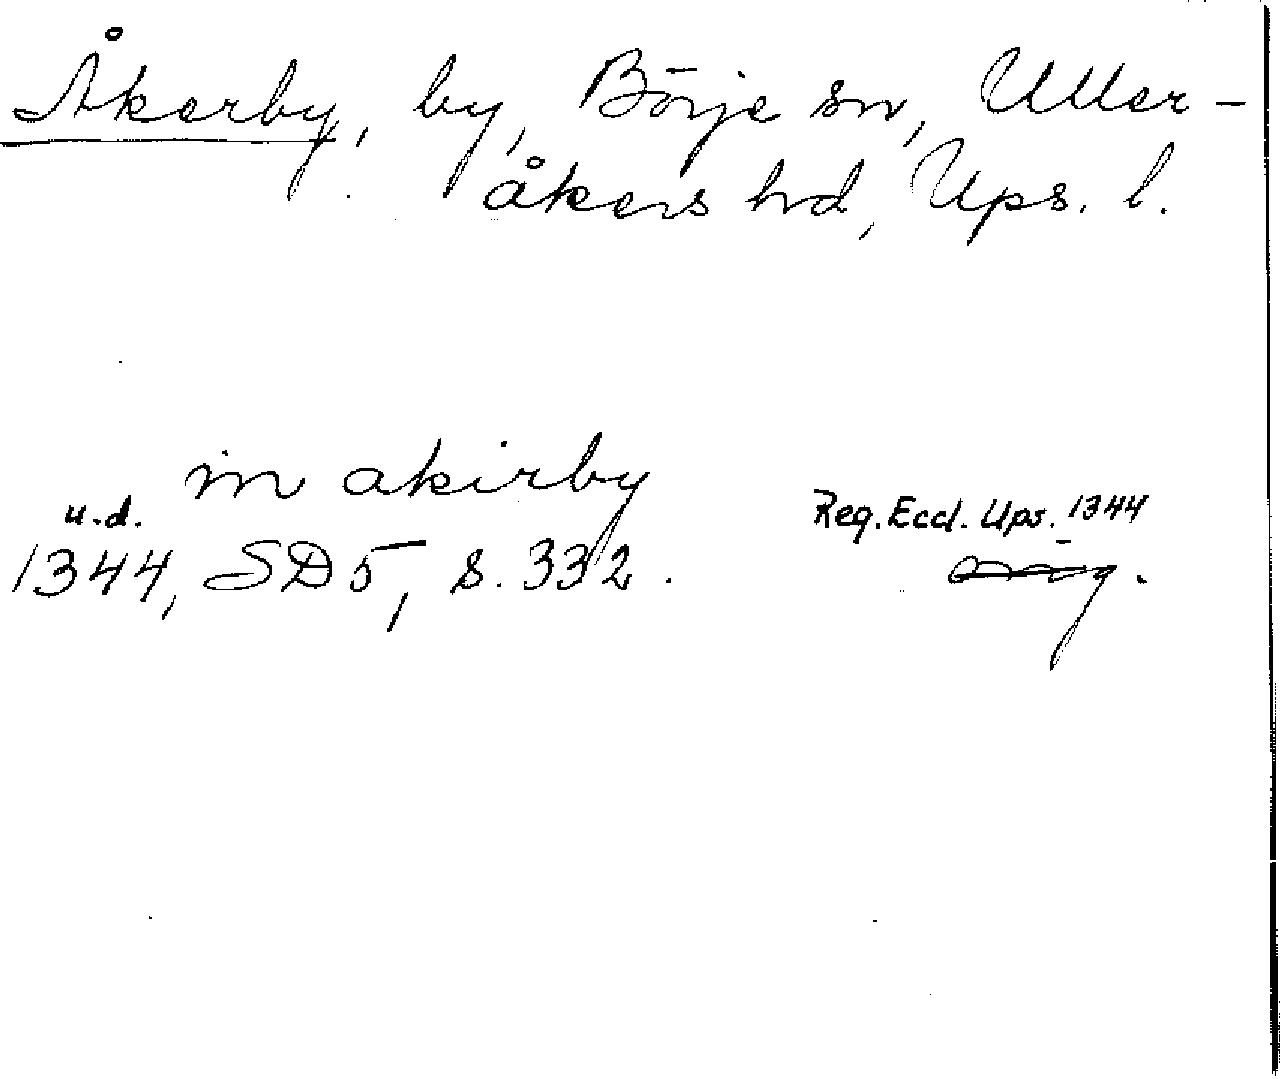 Åkerby, by, Börje sn, Uller-
åkers hd, Ups. l.
in akirby
u.d.
1344, SD 5, s. 332.
Reg. Eccl. Ups. 1344